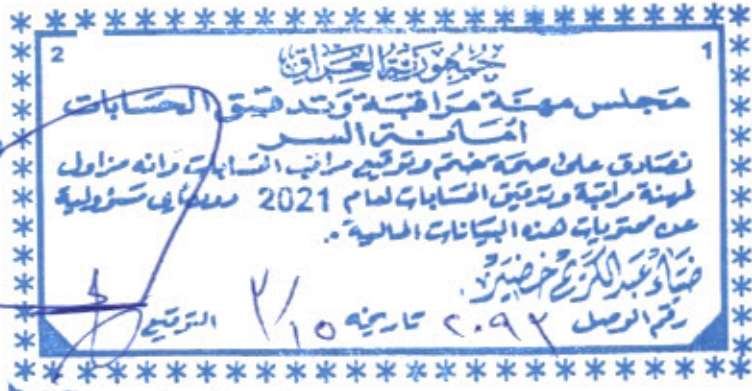 2 1
جمهورية العراق
مجلس مهنة مراقبة وتدقيق الحسابات
أمانة السر
نصادق على صحة ختم وتوقيع مراقب الحسابات وانه مزاول
لمهنة مراقبة وتدقيق الحسابات لعام 2021 دون أي مسؤولية
عن محتويات هذه البيانات المالية.
ضياء عبد الكريم خضير
رقم الوصل ٢٠٩٢ تاريخه ٢/١٥ التوقيع